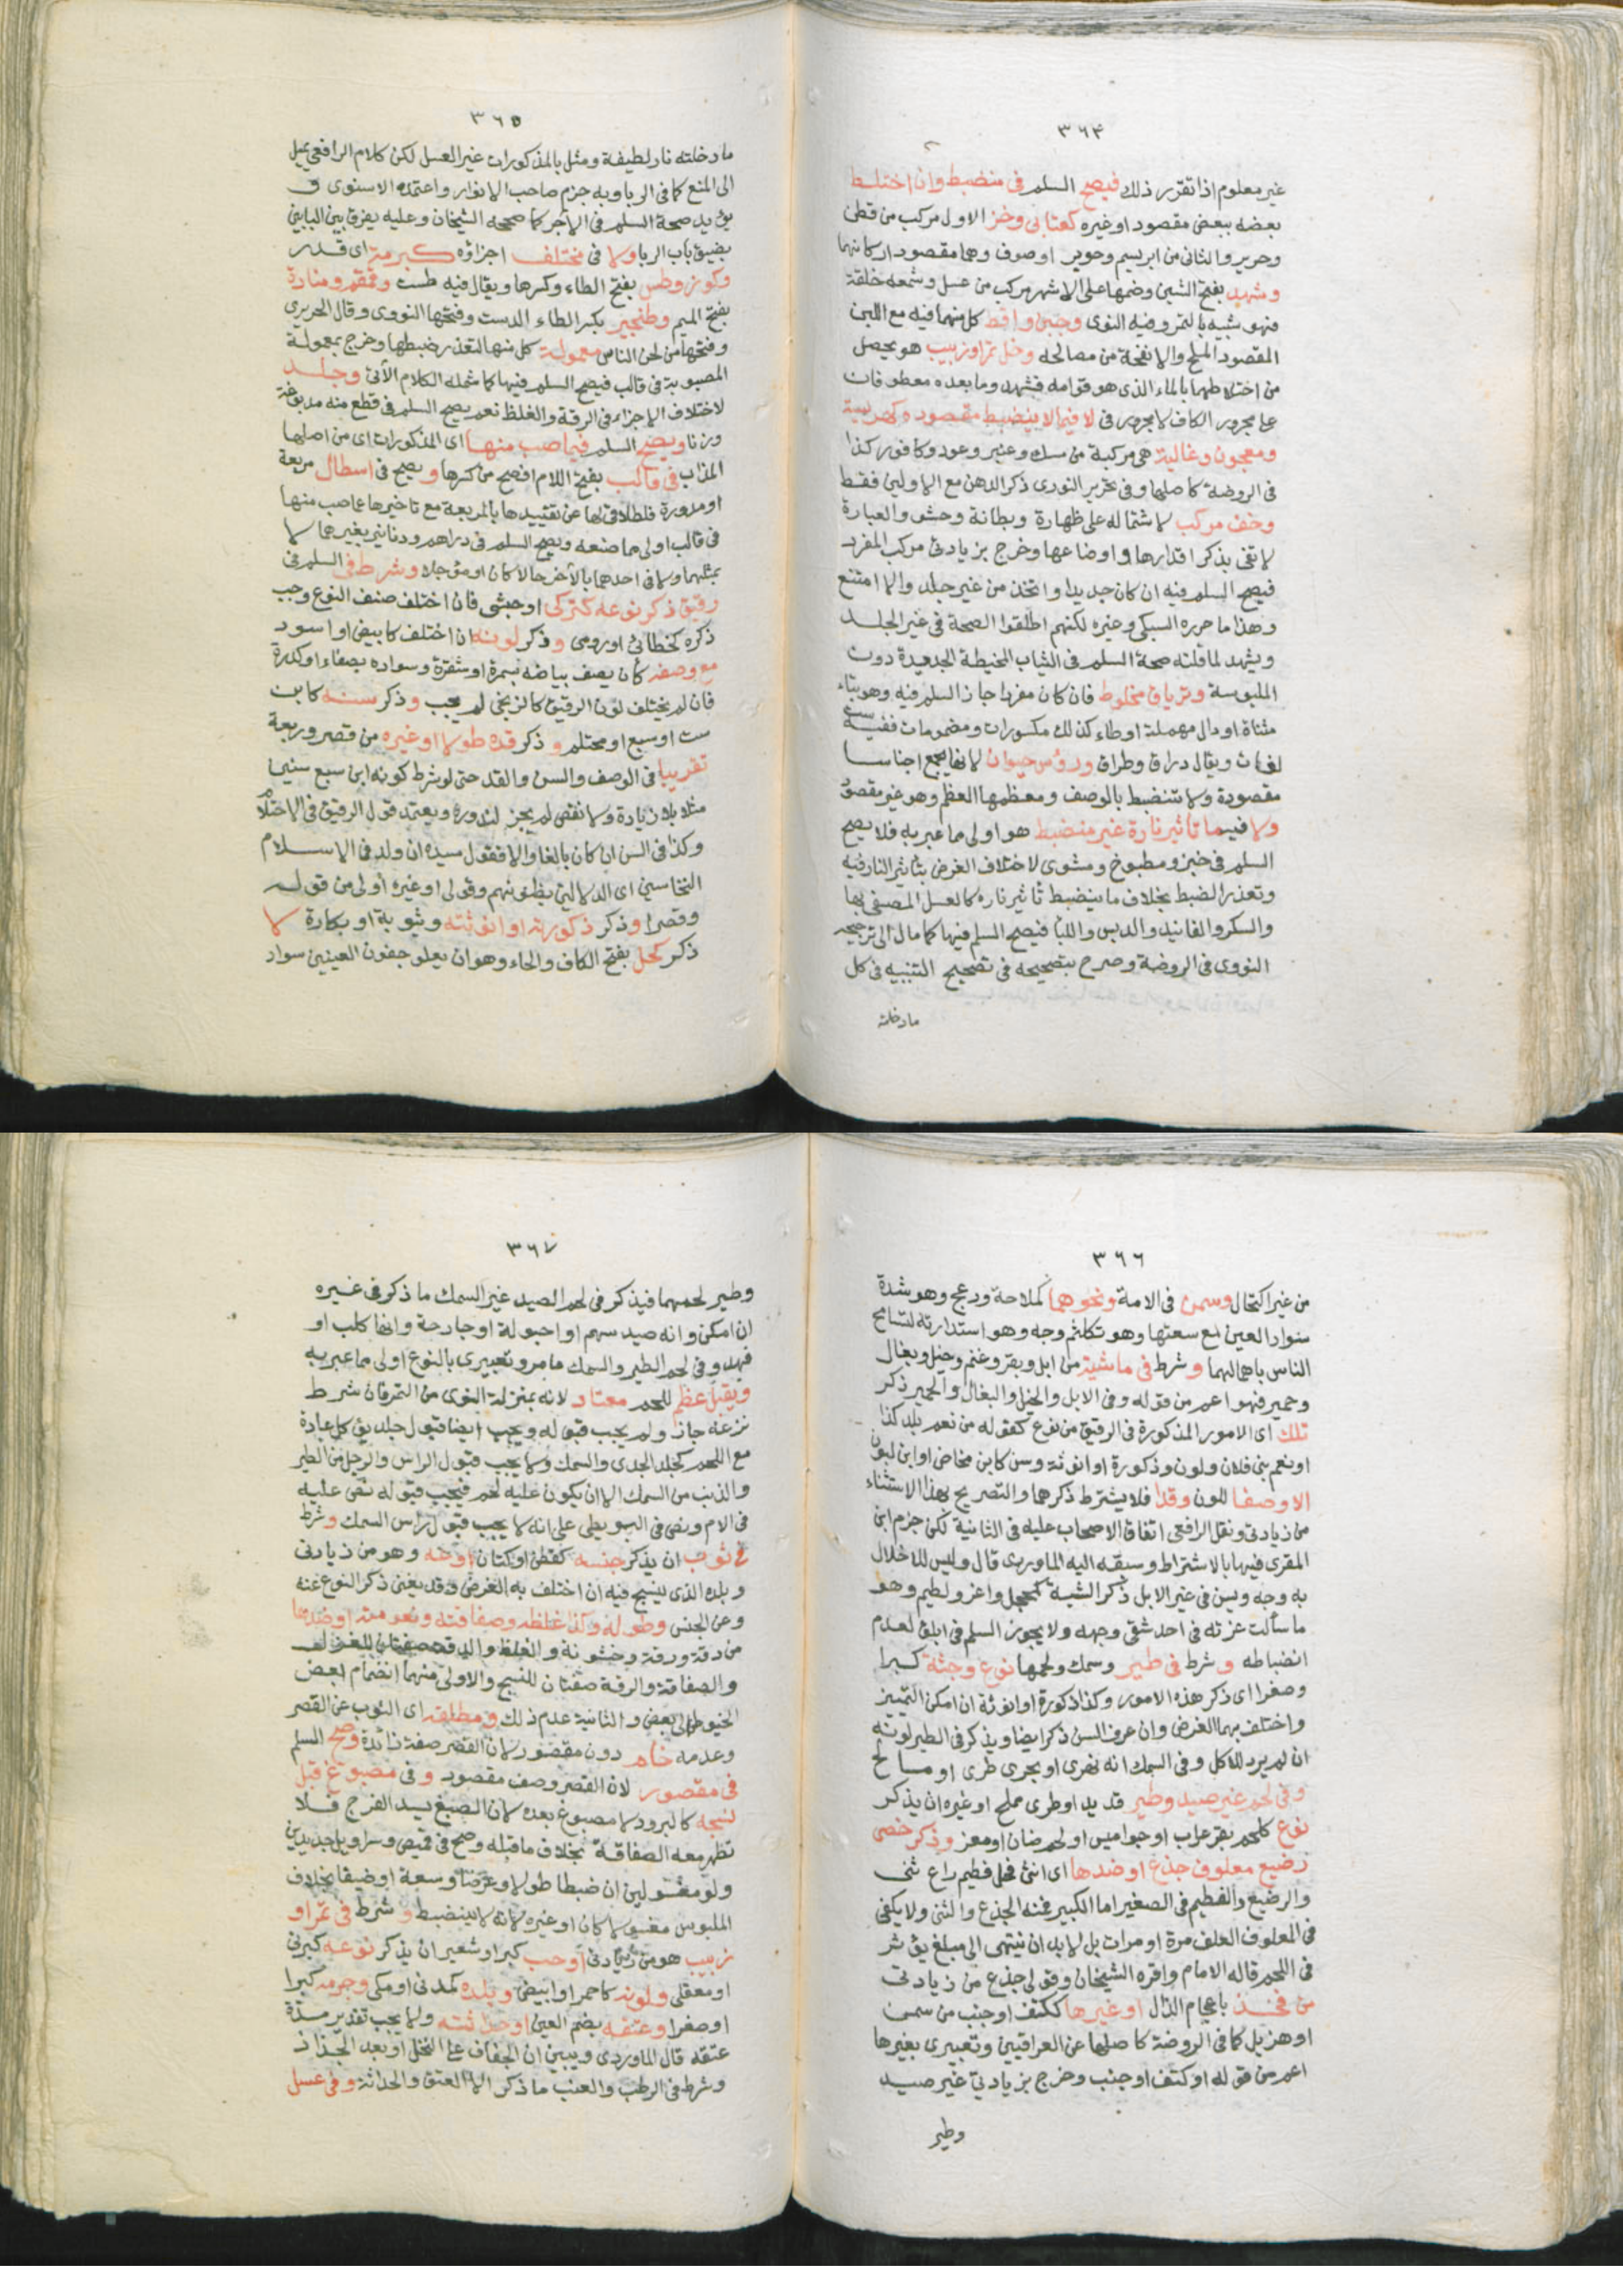 ٣٦٤
غير معلوم اذا تقرر ذلك فيصح السلم في منضبط وان اختلط
بعضه ببعض مقصود او غيره كعتابى وخز الاول مركب من قطن
وحرير والثانى من ابريسم ووبر او صوف وهما مقصود اركانهما
وشهد بفتح الشين وضمها على الاشهر مركب من عسل وشمعه خلقة
فهو شبيه بالتمر وفيه النوى وجبن واقط كل منهما فيه مع اللبن
المقصود الملح والانفحة من مصالحه وخل تمر او زبيب هو يحصل
من اختلاطهما بالماء الذى هو قوامه فشهد وما بعده معطوفات
على مجرور الكاف لا مجرور في لا فيما لا ينضبط مقصوده كهريسة
ومعجون وغالية هى مركبة من مسك وعنبر وعود وكافور كذا
في الروضة كاصلها وفي تحرير النووى ذكر الدهن مع الاولين فقط
وخف مركب لاشتماله على ظهارة وبطانة وحشو والعبارة
لا تفى بذكر اقدارها واوضاعها وخرج بزيادتى مركب المفرد
فيصح السلم فيه ان كان جديدا واتخذ من غير جلد والا امتنع
وهذا ما حرره السبكى وغيره لكنهم اطلقوا الصحة في غير الجلد
ويشهد لما قلته صحة السلم في الثياب المخيطة الجديدة دون
الملبوسة وترياق مخلوط فان كان مفردا جاز السلم فيه وهو بتاء
مثناة او دال مهملة او طاء كذلك مكسورات ومضمومات ففيه ست
لغات ويقال دراق وطراق ورؤس حيوان لانها تجمع اجناسا
مقصودة ولا تنضبط بالوصف ومعظمها العظم وهو غير مقصود
ولا فيما تاثير نارة غير منضبط هو اولى مما عبر به فلا يصح
السلم في خبز ومطبوخ ومشوى لاختلاف الغرض بتاثير النار فيه
وتعذر الضبط بخلاف ما ينضبط تاثير ناره كالعسل المصفى بها
والسكر والفانيد والدبس واللبا فيصح السلم فيها كما مال الى ترجيحه
النووى في الروضة وصرح بتصحيحه في تصحيح التنبيه في كل
ما دخلته
٣٦٥
ما دخلته نار لطيفة ومثل بالمذكورات غير العسل لكن كلام الرافعى يميل
الى المنع كما في الربا وبه جزم صاحب الانوار واعتمده الاسنوى و
يؤيد صحة السلم في الآجر كما صححه الشيخان وعليه يفرق بين البابين
بضيق باب الربا ولا في مختلف اجزاؤه كبرمة اى قدر
وكوز وطس بفتح الطاء وكسرها ويقال فيه طست وقمقم ومنارة
بفتح الميم وطنجير بكسر الطاء الدست وفتحها النووى وقال الحريرى
وفتحها من لحن الناس معمولة كل منها لتعذر ضبطها وخرج بمعمولة
المصبوبة في قالب فيصح السلم فيها كما شمله الكلام الآتى وجلد
لاختلاف الاجزاء في الرقة والغلظ نعم يصح السلم في قطع منه مدبوغة
وزنا ويصح السلم فيما صب منها اى المذكورات اى من اصلها
المذاب في قالب بفتح اللام افصح من كسرها ويصح في اسطال مربعة
او مدورة فاطلاقى لها عن تقييدها بالمربعة مع تاخيرها عما صب منها
في قالب اولى مما صنعه ويصح السلم في دراهم ودنانير بغيرهما لا
بمثلهما ولا في احدهما بالآخر حالا كان او مؤجلا وشرط في السلم في
رقيق ذكر نوعه كتركى او حبشى فان اختلف صنف النوع وجب
ذكره كخطائى او رومى وذكر لونه ان اختلف كابيض او اسود
مع وصفه كان يصف بياضه بسمرة او شقرة وسواده بصفاء او كدرة
فان لم يختلف لون الرقيق كالزنجى لم يجب وذكر سنه كابن
ست او سبع او محتلم و ذكر قده طولا او غيره من قصر وربعة
تقريبا في الوصف والسن والقد حتى لو شرط كونه ابن سبع سنين
مثلا بلا زيادة ولا نقص لم يجز لندوره ويعتمد قول الرقيق في الاحتلام
وكذا في السن ان كان بالغا والا فقول سيده ان ولد في الاسلام
النخاسين اى الدلالين بظنونهم وقولى او غيره أولى من قوله
وقصرا وذكر ذكورته او انوثته وثيوبة او بكارة لا
ذكر كحل بفتح الكاف والحاء وهو ان يعلو جفون العينين سواد
٣٦٦
من غير اكتحال وسمن في الامة ونحوهما كملاحة ودعج وهو شدة
سواد العين مع سعتها وهو تكلثم وجه وهو استدارته لتسامح
الناس باهمالهما وشرط في ماشية من ابل وبقر وغنم وخيل وبغال
وحمير فهو اعم من قوله وفي الابل والخيل والبغال والحمير ذكر
تلك اى الامور المذكورة في الرقيق من نوع كقوله من نعم بلد كذا
او نعم بنى فلان ولون وذكورة او انوثة وسن كابن مخاض او ابن لبون
الا وصفا للون وقدا فلا يشترط ذكرهما والتصريح بهذا الاستثناء
من زيادتى ونقل الرافعى اتفاق الاصحاب عليه في الثانية لكن جزم ابن
المقرى فيها بالاشتراط وسبقه اليه الماوردى قال وليس للاخلال
به وجه ويسن في غير الابل ذكر الشية كمحجل واغر ولطيم وهو
ما سالت غرته في احد شقى وجهه ولا يجوز السلم في ابلق لعدم
انضباطه وشرط في طير وسمك ولحمها نوع وجثة كبرا
وصغرا اى ذكر هذه الامور وكذا ذكورة او انوثة ان امكن التمييز
واختلف بهما الغرض وان عرف السن ذكر ايضا ويذكر في الطير لونه
ان لم يرد للاكل وفي السمك انه نهرى او بحرى طرى او مالح
وفي لحم غير صيد وطير قديد او طرى مملح او غيره ان يذكر
نوع كلحم بقر عراب او جواميس او لحم ضان او معز وذكر خصى
رضيع معلوف جذع او ضدها اى انثى فحل فطيم راع ثنى
والرضيع والفطيم في الصغير اما الكبير فمنه الجذع والثنى ولا يكفى
في المعلوف العلف مرة او مرات بل لا بد ان ينتهى الى مبلغ يؤثر
في اللحم قاله الامام واقره الشيخان وقولى جذع من زيادتى
من فخذ باعجام الذال او غيرها ككتف او جنب من سمين
او هزيل كما في الروضة كاصلها عن العراقيين وتعبيرى بغيرها
اعم من قوله او كتف او جنب وخرج بزيادتى غير صيد
وطير
٣٦٧
وطير لحمهما فيذكر في لحم الصيد غير السمك ما ذكر في غيره
ان امكن وانه صيد سهم او احبولة او جارحة وانها كلب او
فهد وفي لحم الطير والسمك ما مر وتعبيرى بالنوع اولى مما عبر به
ويقبل عظم للحم معتاد لانه بمنزلة النوى من التمر فان شرط
نزعه جاز ولم يجب قبوله ويجب ايضا قبول جلد يؤكل عادة
مع اللحم كجلد الجدى والسمك ولا يجب قبول الراس والرجل من الطير
والذنب من السمك الا ان يكون عليه لحم فيجب قبوله نص عليه
في الام ونص في البويطى على انه لا يجب قبول راس السمك وشرط
في ثوب ان يذكر جنسه كقطن او كتان ونوعه وهو من زيادتى
وبلده الذى ينسج فيه ان اختلف به الغرض وقد يغنى ذكر النوع عنه
وعن الجنس وطوله وكذا غلظه وصفاقته ونعومته او ضدها
من دقة ورقة وخشونة والغلظ والدقة صفتان للغزل
والصفاقة والرقة صفتان للنسج والاولى منهما انضمام بعض
الخيوط الى بعض والثانية عدم ذلك ومطلقه اى الثوب عن القصر
وعدمه خام دون مقصور لان القصر صفة زائدة وصح السلم
في مقصور لان القصر وصف مقصود وفي مصبوغ قبل
نسجه كالبرود لا مصبوغ بعده لان الصبغ يسد الفرج فلا
تظهر معه الصفاقة بخلاف ما قبله وصح في قميص وسراويل جديدين
ولو مغسولين ان ضبطا طولا وعرضا وسعة او ضيقا بخلاف
الملبوس مغسولا كان او غيره لانه لا ينضبط و شرط في تمر او
زبيب هو من زيادتى او حب كبر او شعير ان يذكر نوعه كبرنى
او معقلى ولونه كاحمر او ابيض وبلده كمدنى او مكى وجرمه كبرا
او صغرا وعتقه بضم العين او حداثته ولا يجب تقدير مدة
عتقه قال الماوردى ويبين ان الجفاف على النخل او بعد الجذاذ
وشرط في الرطب والعنب ما ذكر الا العتق والحداثة وفي عسل